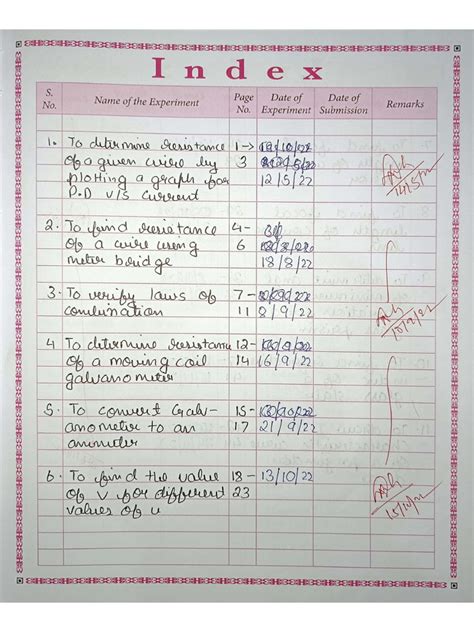 Index
S. No. Name of the Experiment Page No. Date of Experiment Date of Submission Remarks
1. To determine resistance 1 →
of a given wire by 3
plotting a graph for 12/5/22
P.D v/s current
14/5/22
2. To find resistance 4-
of a wire using 6
meter bridge 18/8/22
3. To verify laws of 7-
combination 11 2/9/22
4 To determine resistance 12-
of a moving coil 14 16/9/22
galvanometer
5. To convert Galv- 15-
anometer to an 17 21/9/22
ammeter
6. To find the value 18- 13/10/22
of v for different 23
values of u